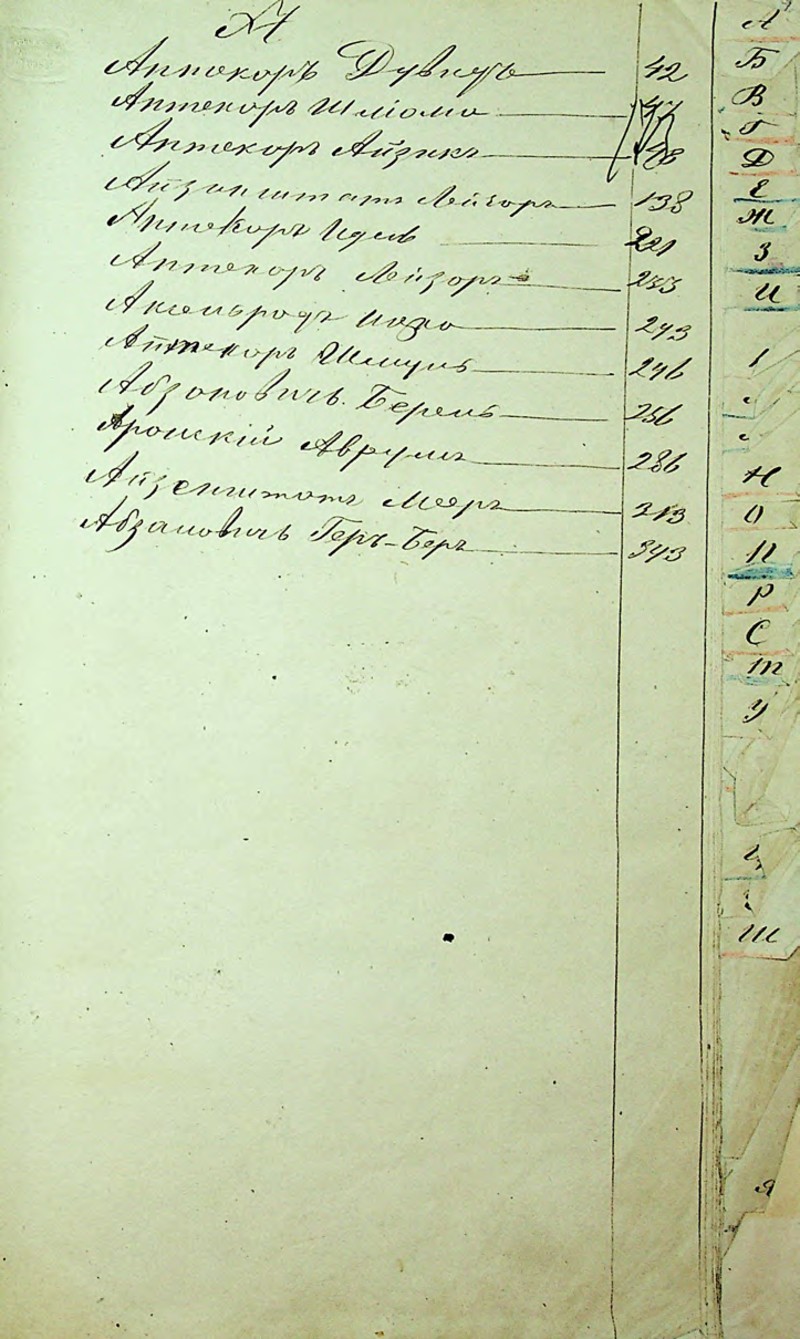 Аптекоръ Дувидъ 42
Аптекоръ Шлiома 47
Аптекоръ Айзикъ 78
Айзанштатъ Лейзоръ 138
Аптекоръ Идель 221
Аптекоръ Лейзоръ 233
Аксельродъ 243
Аптекоръ Шмуль 246
Абзоновичъ Берель 256
Аронскiй Аврумъ 286
Айзенштотъ Мееръ 213
Абзановичъ Геръ-Беръ 343
А
Б
В
Г
Д
Е
Ж
З
И
I
Н
О
П
Р
С
Т
У
Ш
Я